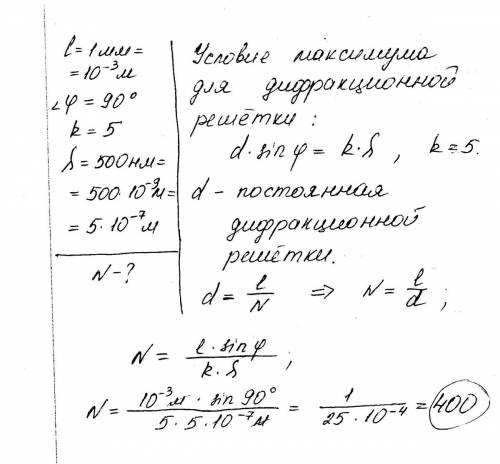 l = 1 мм =
= 10⁻³ м
∠φ = 90°
k = 5
λ = 500 нм =
= 500·10⁻⁹ м =
= 5·10⁻⁷ м
N - ?
Условие максимума
для дифракционной
решётки :
d·sin φ = k·λ , k = 5.
d - постоянная
дифракционной
решётки.
d = l/N => N = l/d ;
N = l·sin φ / k·λ ;
N = 10⁻³ м · sin 90° / 5·5·10⁻⁷ м = 1 / 25·10⁻⁴ = 400